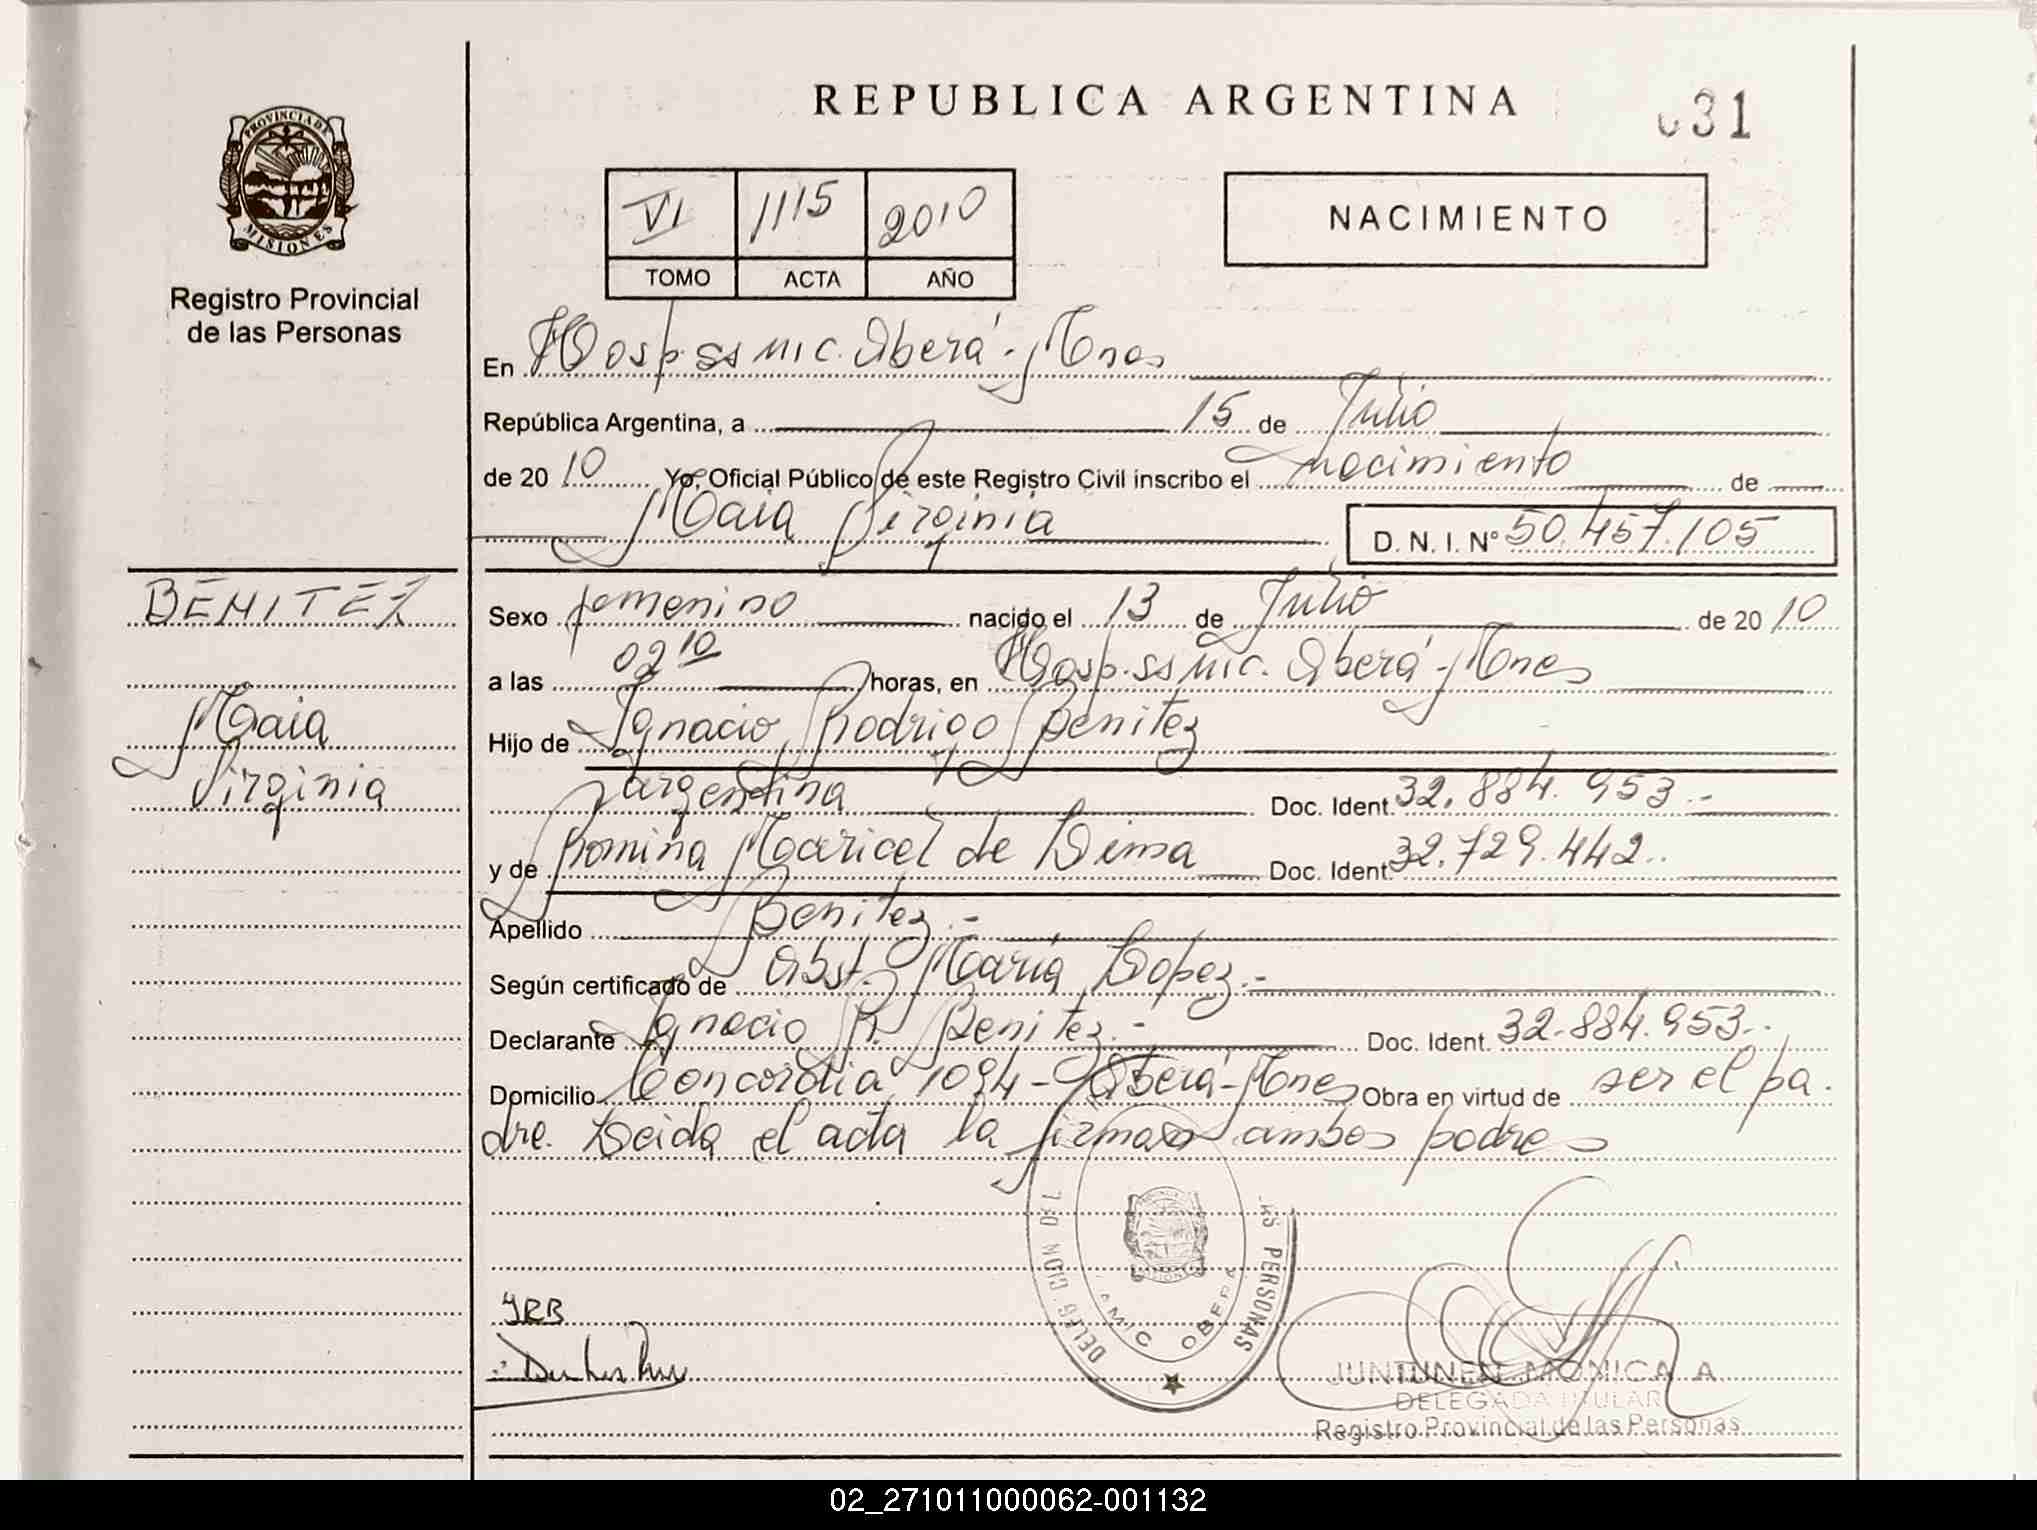 REPUBLICA ARGENTINA
031
PROVINCIA DE
MISIONES
Registro Provincial
de las Personas
VI 1115 2010
TOMO ACTA AÑO
NACIMIENTO
En Hosp. ss mic. Oberá - Mnes
República Argentina, a 15 de Julio
de 20 10 Yo, Oficial Público de este Registro Civil inscribo el nacimiento de
Maia Virginia D. N. I. N° 50.457.105
BENITEZ
Maia
Virginia
Sexo femenino nacido el 13 de Julio de 20 10
a las 02 10 horas, en Hosp. ss mic. Oberá - Mnes
Hijo de Ignacio Rodrigo Benitez
argentina Doc. Ident. 32.884.953.-
y de Romina Maricel de Lima Doc. Ident. 32.729.442..
Apellido Benitez.-
Según certificado de Obst. María Lopez.-
Declarante Ignacio R. Benitez.- Doc. Ident. 32.884.953..
Domicilio Concordia 1094 - Oberá - Mnes Obra en virtud de ser el pa.
dre. Leida el acta la firman ambos padres
DELEG CION DEL
AS PERSONAS
AMIC OBERA
IRB
JUNTUNEN MONICA A
DELEGADA TITULAR
Registro Provincial de las Personas
02_271011000062-001132